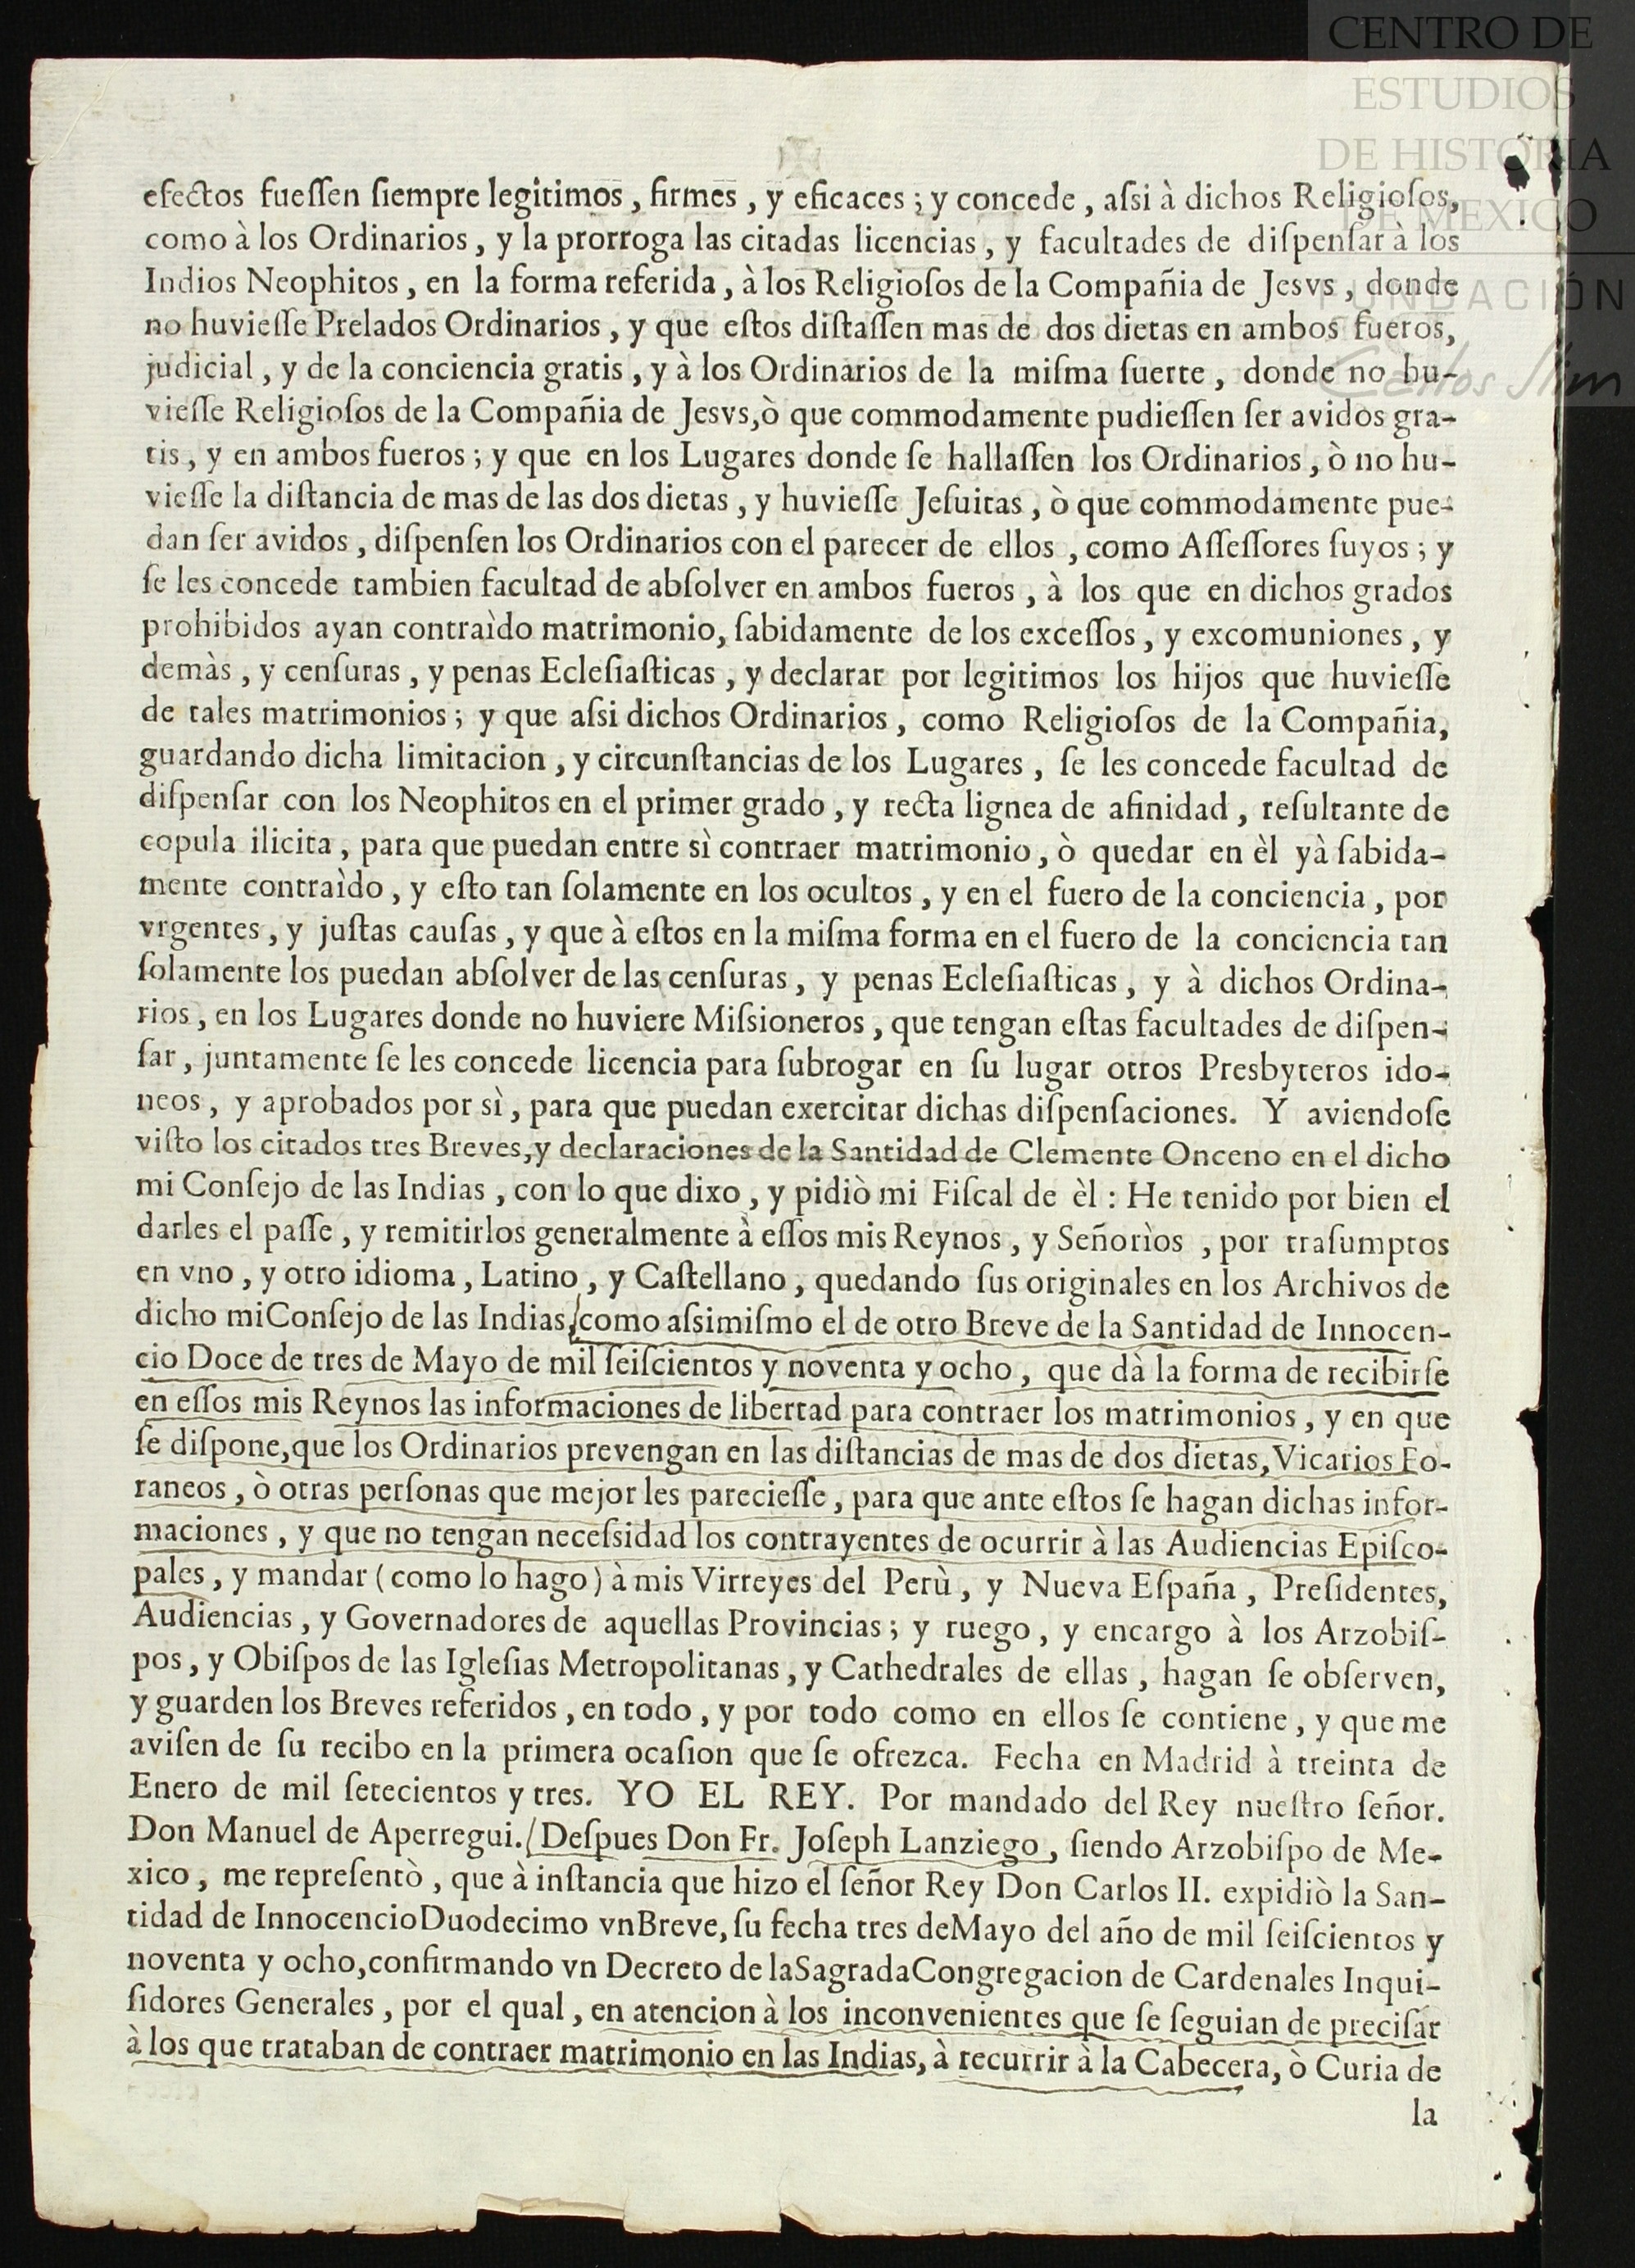 CENTRO DE
ESTUDIOS
DE HISTORIA
DE MEXICO
FUNDACIÓN
Carlos Slim
efectos fueſſen ſiempre legitimos, firmes, y eficaces; y concede, aſsi à dichos Religioſos,
como à los Ordinarios, y la prorroga las citadas licencias, y facultades de diſpenſar à los
Indios Neophitos, en la forma referida, à los Religioſos de la Compañia de Jesvs, donde
no huvieſſe Prelados Ordinarios, y que eſtos diſtaſſen mas de dos dietas en ambos fueros,
judicial, y de la conciencia gratis, y à los Ordinarios de la miſma ſuerte, donde no hu-
vieſſe Religioſos de la Compañia de Jesvs,ò que commodamente pudieſſen ſer avidos gra-
tis, y en ambos fueros; y que en los Lugares donde ſe hallaſſen los Ordinarios, ò no hu-
vieſſe la diſtancia de mas de las dos dietas, y huvieſſe Jeſuitas, ò que commodamente pue-
dan ſer avidos, diſpenſen los Ordinarios con el parecer de ellos, como Aſſeſſores ſuyos; y
ſe les concede tambien facultad de abſolver en ambos fueros, à los que en dichos grados
prohibidos ayan contraìdo matrimonio, ſabidamente de los exceſſos, y excomuniones, y
demàs, y cenſuras, y penas Ecleſiaſticas, y declarar por legitimos los hijos que huvieſſe
de tales matrimonios; y que aſsi dichos Ordinarios, como Religioſos de la Compañia,
guardando dicha limitacion, y circunſtancias de los Lugares, ſe les concede facultad de
diſpenſar con los Neophitos en el primer grado, y recta lignea de afinidad, reſultante de
copula ilicita, para que puedan entre sì contraer matrimonio, ò quedar en èl yà ſabida-
mente contraìdo, y eſto tan ſolamente en los ocultos, y en el fuero de la conciencia, por
vrgentes, y juſtas cauſas, y que à eſtos en la miſma forma en el fuero de la conciencia tan
ſolamente los puedan abſolver de las cenſuras, y penas Ecleſiaſticas, y à dichos Ordina-
rios, en los Lugares donde no huviere Miſsioneros, que tengan eſtas facultades de diſpen-
ſar, juntamente ſe les concede licencia para ſubrogar en ſu lugar otros Presbyteros ido-
neos, y aprobados por sì, para que puedan exercitar dichas diſpenſaciones. Y aviendoſe
viſto los citados tres Breves,y declaraciones de la Santidad de Clemente Onceno en el dicho
mi Conſejo de las Indias, con lo que dixo, y pidiò mi Fiſcal de èl: He tenido por bien el
darles el paſſe, y remitirlos generalmente à eſſos mis Reynos, y Señorìos, por traſumptos
en vno, y otro idioma, Latino, y Caſtellano, quedando ſus originales en los Archivos de
dicho miConſejo de las Indias,como aſsimiſmo el de otro Breve de la Santidad de Innocen-
cio Doce de tres de Mayo de mil ſeiſcientos y noventa y ocho, que dà la forma de recibirſe
en eſſos mis Reynos las informaciones de libertad para contraer los matrimonios, y en que
ſe diſpone,que los Ordinarios prevengan en las diſtancias de mas de dos dietas, Vicarios Fo-
raneos, ò otras perſonas que mejor les parecieſſe, para que ante eſtos ſe hagan dichas infor-
maciones, y que no tengan neceſsidad los contrayentes de ocurrir à las Audiencias Epiſco-
pales, y mandar (como lo hago) à mis Virreyes del Perù, y Nueva Eſpaña, Preſidentes,
Audiencias, y Governadores de aquellas Provincias; y ruego, y encargo à los Arzobiſ-
pos, y Obiſpos de las Igleſias Metropolitanas, y Cathedrales de ellas, hagan ſe obſerven,
y guarden los Breves referidos, en todo, y por todo como en ellos ſe contiene, y que me
aviſen de ſu recibo en la primera ocaſion que ſe ofrezca. Fecha en Madrid à treinta de
Enero de mil ſetecientos y tres. YO EL REY. Por mandado del Rey nueſtro ſeñor.
Don Manuel de Aperregui. Deſpues Don Fr. Joſeph Lanziego, ſiendo Arzobiſpo de Me-
xico, me repreſentò, que à inſtancia que hizo el ſeñor Rey Don Carlos II. expidiò la San-
tidad de InnocencioDuodecimo vnBreve, ſu fecha tres deMayo del año de mil ſeiſcientos y
noventa y ocho,confirmando vn Decreto de laSagradaCongregacion de Cardenales Inqui-
ſidores Generales, por el qual, en atencion à los inconvenientes que ſe ſeguian de preciſar
à los que trataban de contraer matrimonio en las Indias, à recurrir à la Cabecera, ò Curia de
la